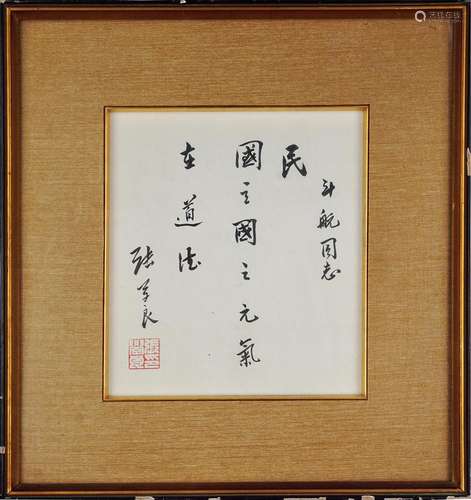 斗航同志
民
國之國之元氣
在道德
張學良